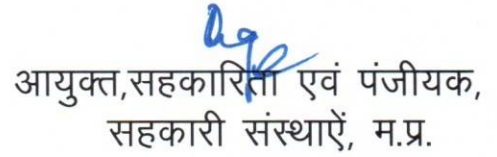 आयुक्त,सहकारिता एवं पंजीयक,
सहकारी संस्थाऐं, म.प्र.